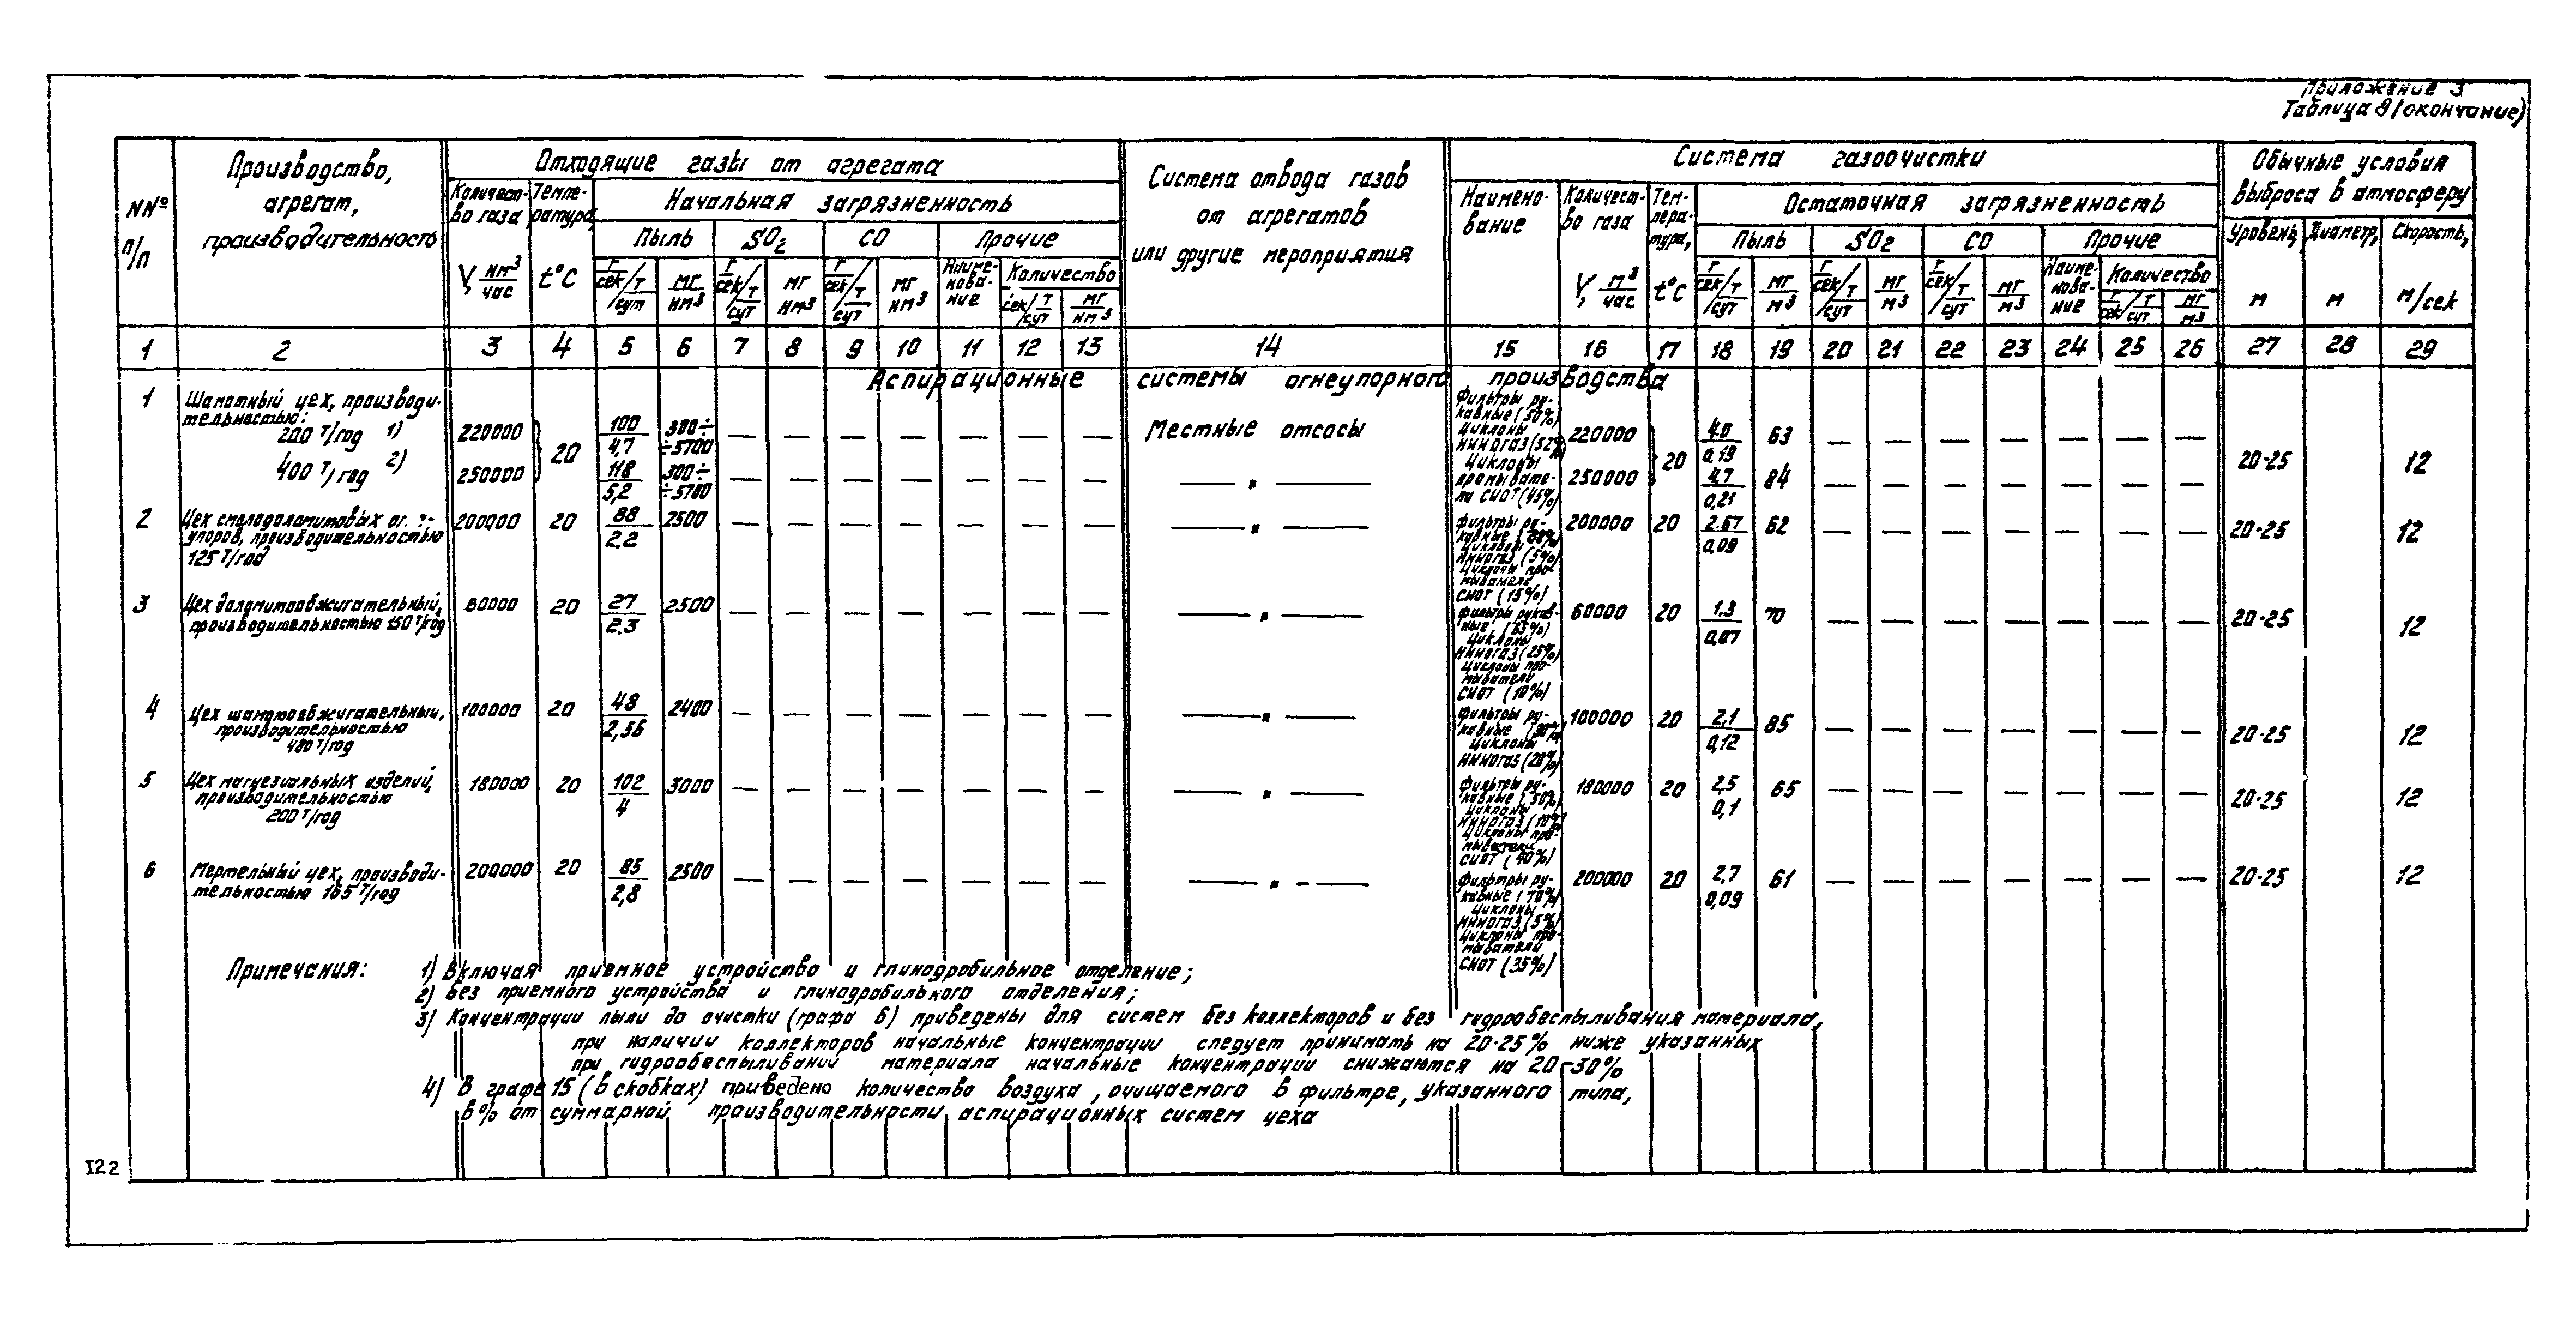 Приложение 3
Таблица 8 (окончание)
NNº п/п
Производство, агрегат, производительность
Отходящие газы от агрегата
Количест-во газа V, нм³/час
Темпе-ратура, t°C
Начальная загрязненность
Пыль г/сек/т/сут мг/нм³
SO₂ г/сек/т/сут мг/нм³
CO г/сек/т/сут мг/нм³
Прочие
Наиме-нова-ние
Количество г/сек/т/сут мг/нм³
Система отвода газов
от агрегатов
или другие мероприятия
Система газоочистки
Наимено-вание
Количест-во газа V, м³/час
Тем-пера-тура, t°C
Остаточная загрязненность
Пыль г/сек/т/сут мг/м³
SO₂ г/сек/т/сут мг/м³
CO г/сек/т/сут мг/м³
Прочие
Наиме-нова-ние
Количество г/сек/т/сут мг/м³
Обычные условия
выброса в атмосферу
Уровень, м
Диаметр, м
Скорость, м/сек
1 2 3 4 5 6 7 8 9 10 11 12 13 14 15 16 17 18 19 20 21 22 23 24 25 26 27 28 29
Аспирационные системы огнеупорного производства
1 Шамотный цех, производи-
тельностью:
200 т/год 1) 220000 20 100/4,7 300÷÷5700 — — — — — — — Местные отсосы
400 т/год 2) 250000 118/5,2 300÷÷5700 — — — — — — — — " —
Фильтры ру-
кавные (50%)
Циклоны
НИИОГАЗ (52%)
Циклоны
промывате-
ли СИОТ (45%)
220000 20 4.0/0,19 63 — — — — — — — 20-25 12
250000 4,7/0,21 84 — — — — — — —
2 Цех смолодоломитовых ог
упоров, производительностью
125 т/год
200000 20 88/2.2 2500 — — — — — — — — " —
Фильтры ру-
кавные
Циклоны
НИИОГАЗ (5%)
Циклоны про-
мыватели
СИОТ (15%)
200000 20 2.67/0,09 62 — — — — — — — 20-25 12
3 Цех доломитообжигательный,
производительностью 150 т/год
60000 20 27/2.3 2500 — — — — — — — — " —
Фильтры рукав-
ные (65%)
Циклоны
НИИОГАЗ (25%)
Циклоны про-
мыватели
СИОТ (10%)
60000 20 1.3/0,07 70 — — — — — — — 20-25 12
4 Цех шамотообжигательный,
производительностью
480 т/год
100000 20 48/2,56 2400 — — — — — — — — " —
Фильтры ру-
кавные
Циклоны
НИИОГАЗ (20%)
100000 20 2,1/0,12 85 — — — — — — — 20-25 12
5 Цех магнезиальных изделий,
производительностью
200 т/год
180000 20 102/4 3000 — — — — — — — — " —
Фильтры ру-
кавные (50%)
Циклоны
НИИОГАЗ (10%)
Циклоны про-
мыватели
СИОТ (40%)
180000 20 2,5/0,1 65 — — — — — — — 20-25 12
6 Мертельный цех, производи-
тельностью 165 т/год
200000 20 85/2,8 2500 — — — — — — — — " —
Фильтры ру-
кавные (70%)
Циклоны
НИИОГАЗ (5%)
Циклоны про-
мыватели
СИОТ (35%)
200000 20 2,7/0,09 61 — — — — — — — 20-25 12
Примечания: 1) Включая приемное устройство и глинодробильное отделение;
2) Без приемного устройства и глинодробильного отделения;
3) Концентрации пыли до очистки (графа 6) приведены для систем без коллекторов и без гидрообеспыливания материала,
при наличии коллекторов начальные концентрации следует принимать на 20-25% ниже указанных
при гидрообеспыливании материала начальные концентрации снижаются на 20-30%
4) В графе 15 (в скобках) приведено количество воздуха, очищаемого в фильтре, указанного типа,
в % от суммарной производительности аспирационных систем цеха
122